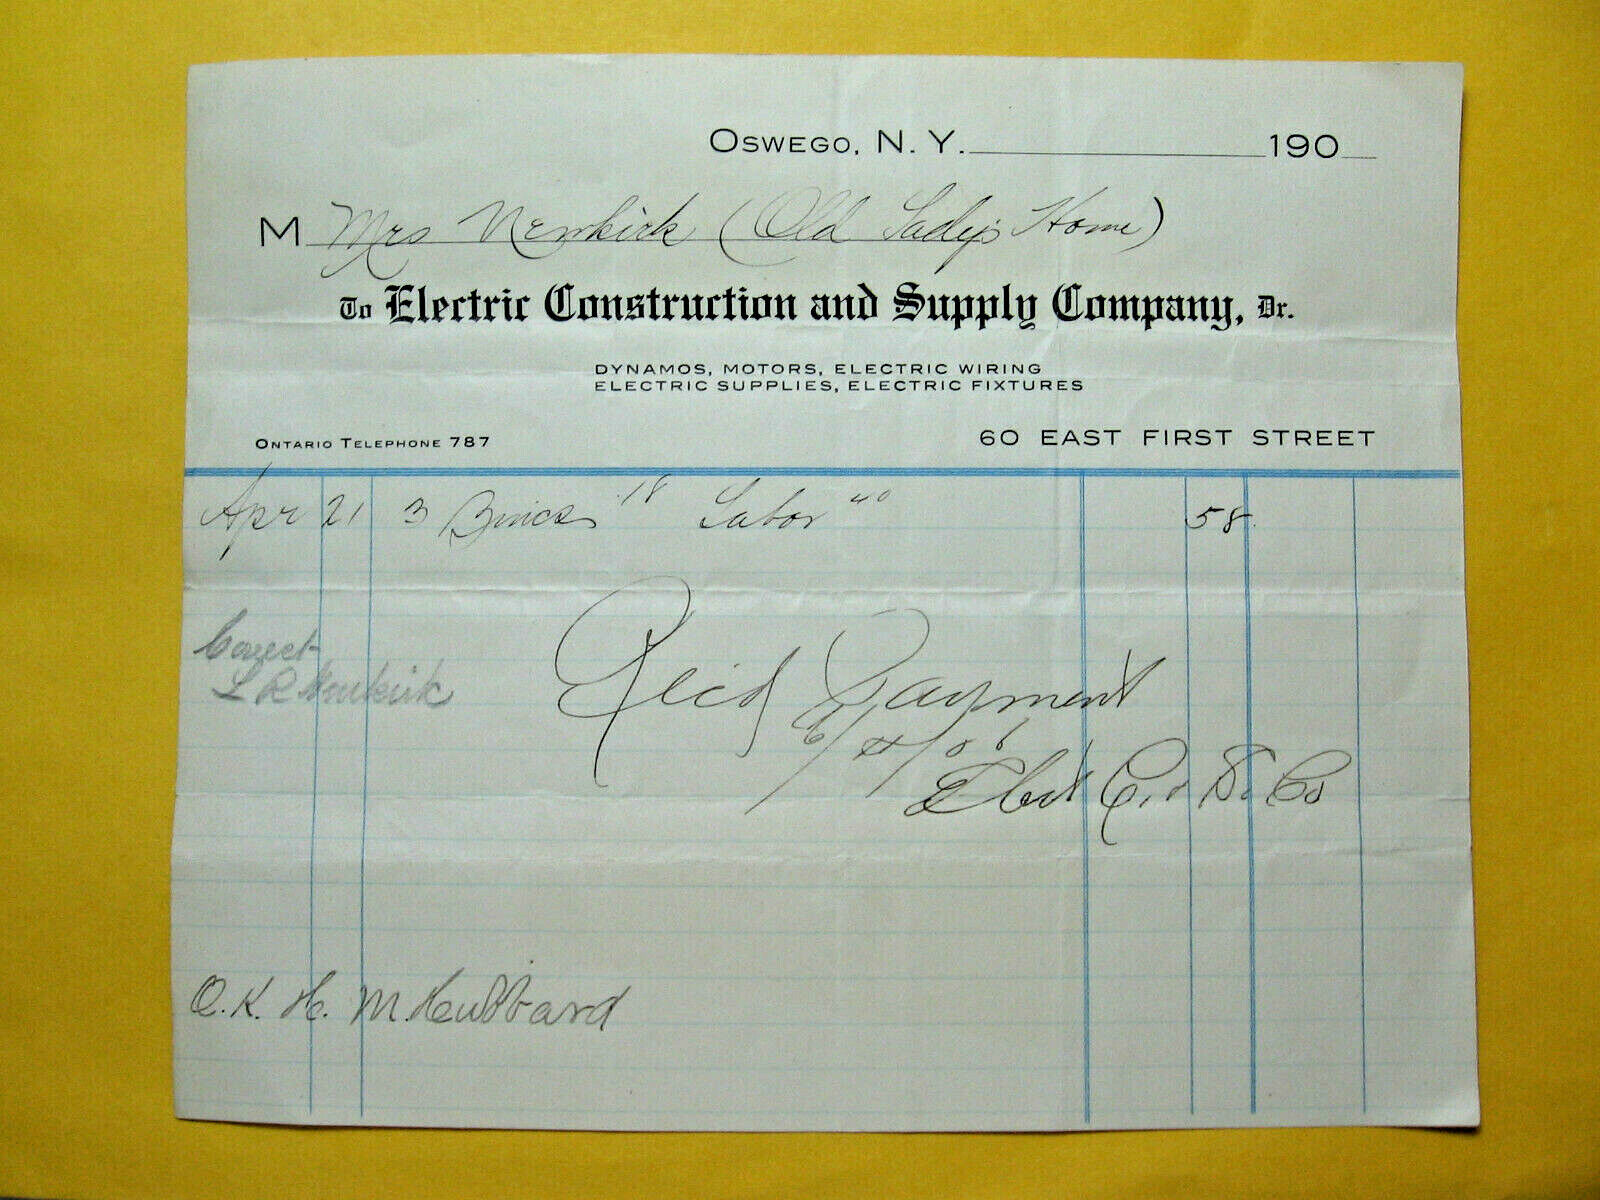 OSWEGO, N. Y. 190
M Mrs Newkirk (Old Lady's Home)
To Electric Construction and Supply Company, Dr.
DYNAMOS, MOTORS, ELECTRIC WIRING
ELECTRIC SUPPLIES, ELECTRIC FIXTURES
ONTARIO TELEPHONE 787
60 EAST FIRST STREET
Apr 21 3 Zincs 18 Labor 40 58
Correct
L R Newkirk
Rec'd Payment
6/4/06
Elect C. & S. Co
O.K. H. M. Hubbard